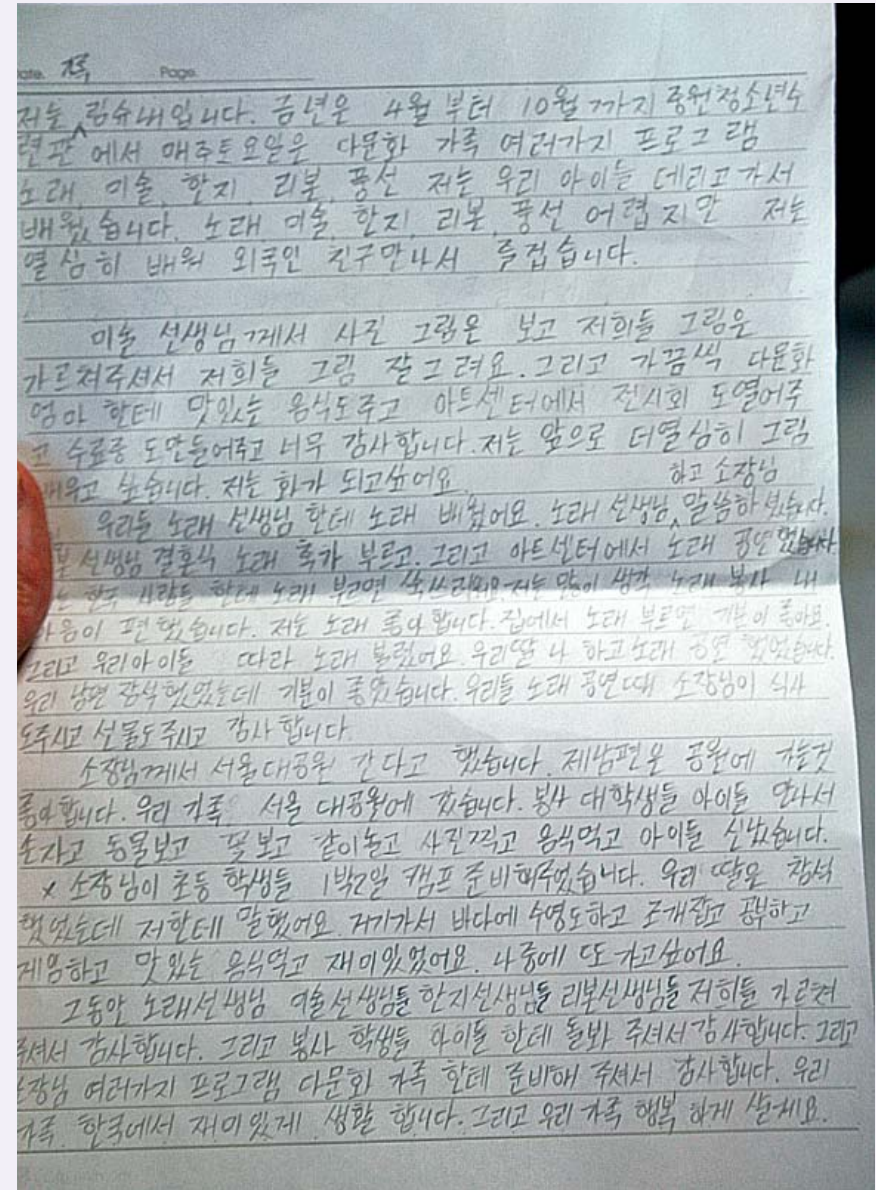 Date. Page.
저는 림슈내입니다. 금년은 4월 부터 10월 까지 중원청소년수
련관 에서 매주토요일은 다문화 가족 여러가지 프로그램
노래, 미술, 한지, 리본, 풍선 저는 우리 아이들 데리고가서
배웠습니다. 노래 미술, 한지, 리본, 풍선 어렵지만 저는
열심히 배워 외국인 친구만나서 즐겁습니다.
미술 선생님께서 사진 그림은 보고 저희들 그림은
가르쳐주셔서 저희들 그림 잘그려요. 그리고 가끔씩 다문화
엄마 한테 맛있는 음식도주고 아트센터에서 전시회 도열어주
고 수료증 도만들어주고 너무 감사합니다. 저는 앞으로 더열심히 그림
배우고 싶습니다. 저는 화가 되고싶어요.
하고 소장님
우리들 노래 선생님 한테 노래 배웠어요. 노래 선생님 말씀하셨습니다.
선생님 결혼식 노래 축가 부르고. 그리고 아트센터에서 노래 공연
한국 사람들 한테 노래 부르면 저는 많이 생각 노래 봉사 내
마음이 편했습니다. 저는 노래 좋아합니다. 집에서 노래 부르면 기분이 좋아요.
그리고 우리아이들 따라 노래 불렀어요. 우리딸 나 하고노래 공연 했었습니다.
우리 남편 참석했었는데 기분이 좋았습니다. 우리들 노래 공연때 소장님이 식사
도주시고 선물도주시고 감사합니다.
소장님께서 서울대공원 간다고 했습니다. 제남편은 공원에 가는것
좋아합니다. 우리 가족 서울 대공원에 갔습니다. 봉사 대학생들 아이들 만나서
손자고 동물보고 꽃보고 같이놀고 사진찍고 음식먹고 아이들 신났습니다.
x 소장님이 초등 학생들 1박2일 캠프 준비해주었습니다. 우리 딸은 참석
했었는데 저한테 말했어요. 거기가서 바다에 수영도하고 조개잡고 공부하고
게임하고 맛있는 음식먹고 재미있었어요. 나중에 또 가고싶어요.
그동안 노래선생님 미술선생님들 한지선생님들 리본선생님들 저희들 가르쳐
주셔서 감사합니다. 그리고 봉사 학생들 아이들 한테 돌봐 주셔서감사합니다. 그리고
소장님 여러가지 프로그램 다문화 가족 한테 준비해 주셔서 감사합니다. 우리
가족 한국에서 재미있게 생활 합니다. 그리고 우리 가족 행복 하게 살게요.